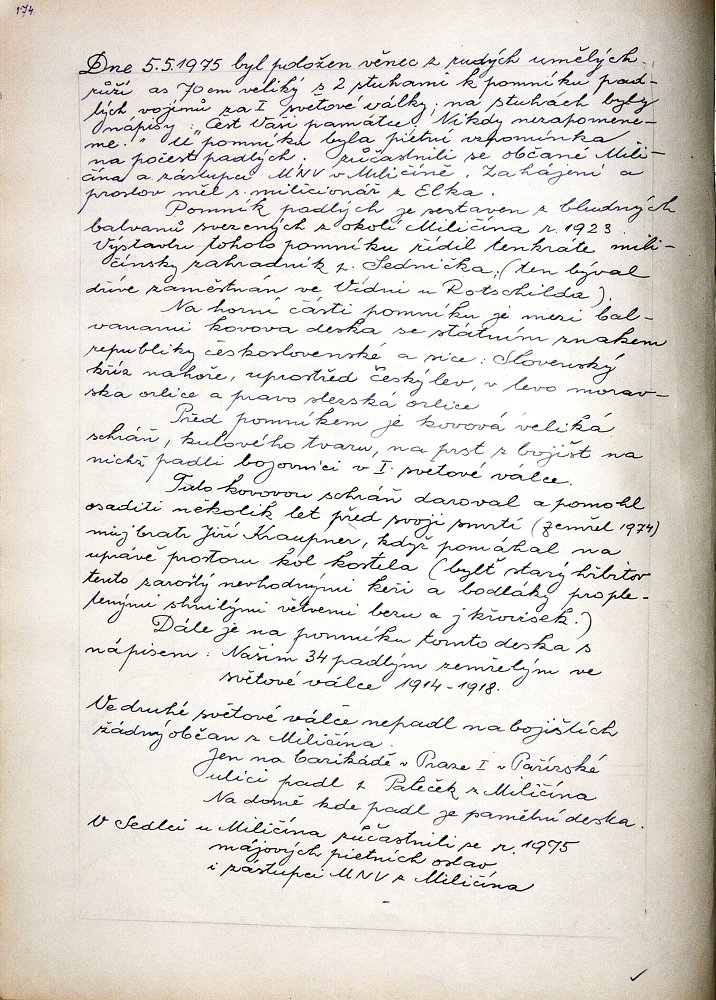 174
Dne 5.5.1975 byl položen věnec z rudých umělých
růží as 70 cm veliký s 2 stuhami k pomníku pad-
lých vojínů za I světové války; na stuhách byly
nápisy: „Čest Vaší památce! Nikdy nezapomene-
me." U pomníku byla pietní vzpomínka
na počest padlých. Zúčastnili se občané Mili-
čína a zástupci MNV v Miličíně. Zahájení a
proslov měl s. milicionář z Elka.
Pomník padlých je sestaven z bludných
balvanů svezených z okolí Miličína r. 1923.
Výstavbu tohoto pomníku řídil tenkráte mili-
čínský zahradník p. Sednička; (ten býval
dříve zaměstnán ve Vídni u Rotschilda).
Na horní části pomníku je mezi bal-
vanami kovova deska se státním znakem
republiky československé a sice: Slovenský
kříž nahoře, uprostřed český lev, v levo morav-
ska orlice a pravo slezská orlice
Před pomníkem je kovová veliká
schráň, kulového tvaru, na prst z bojišt na
nichž padli bojovníci v I. světové válce.
Tuto kovovou schráň daroval a pomohl
osaditi několik let před svojí smrtí (zemřel 1974)
můj bratr Jiří Kraupner, když pomáhal na
úpravě prostoru kol kostela (bylť starý hřbitov
tento zarostlý nevhodnými keři a bodláky prople-
tenými shnilými větvemi bezu a j křovisek.)
Dále je na pomníku tomto deska s
nápisem: Našim 34 padlým zemřelým ve
světové válce 1914-1918.
Ve druhé světové válce nepadl na bojištích
žádný občan z Miličína.
Jen na barikádě v Praze I v Pařížské
ulici padl p. Paleček z Miličína
Na domě kde padl je pamětní deska.
V Sedlci u Miličína zúčastnili se r. 1975
májových pietních oslav
i zástupci MNV z Miličína